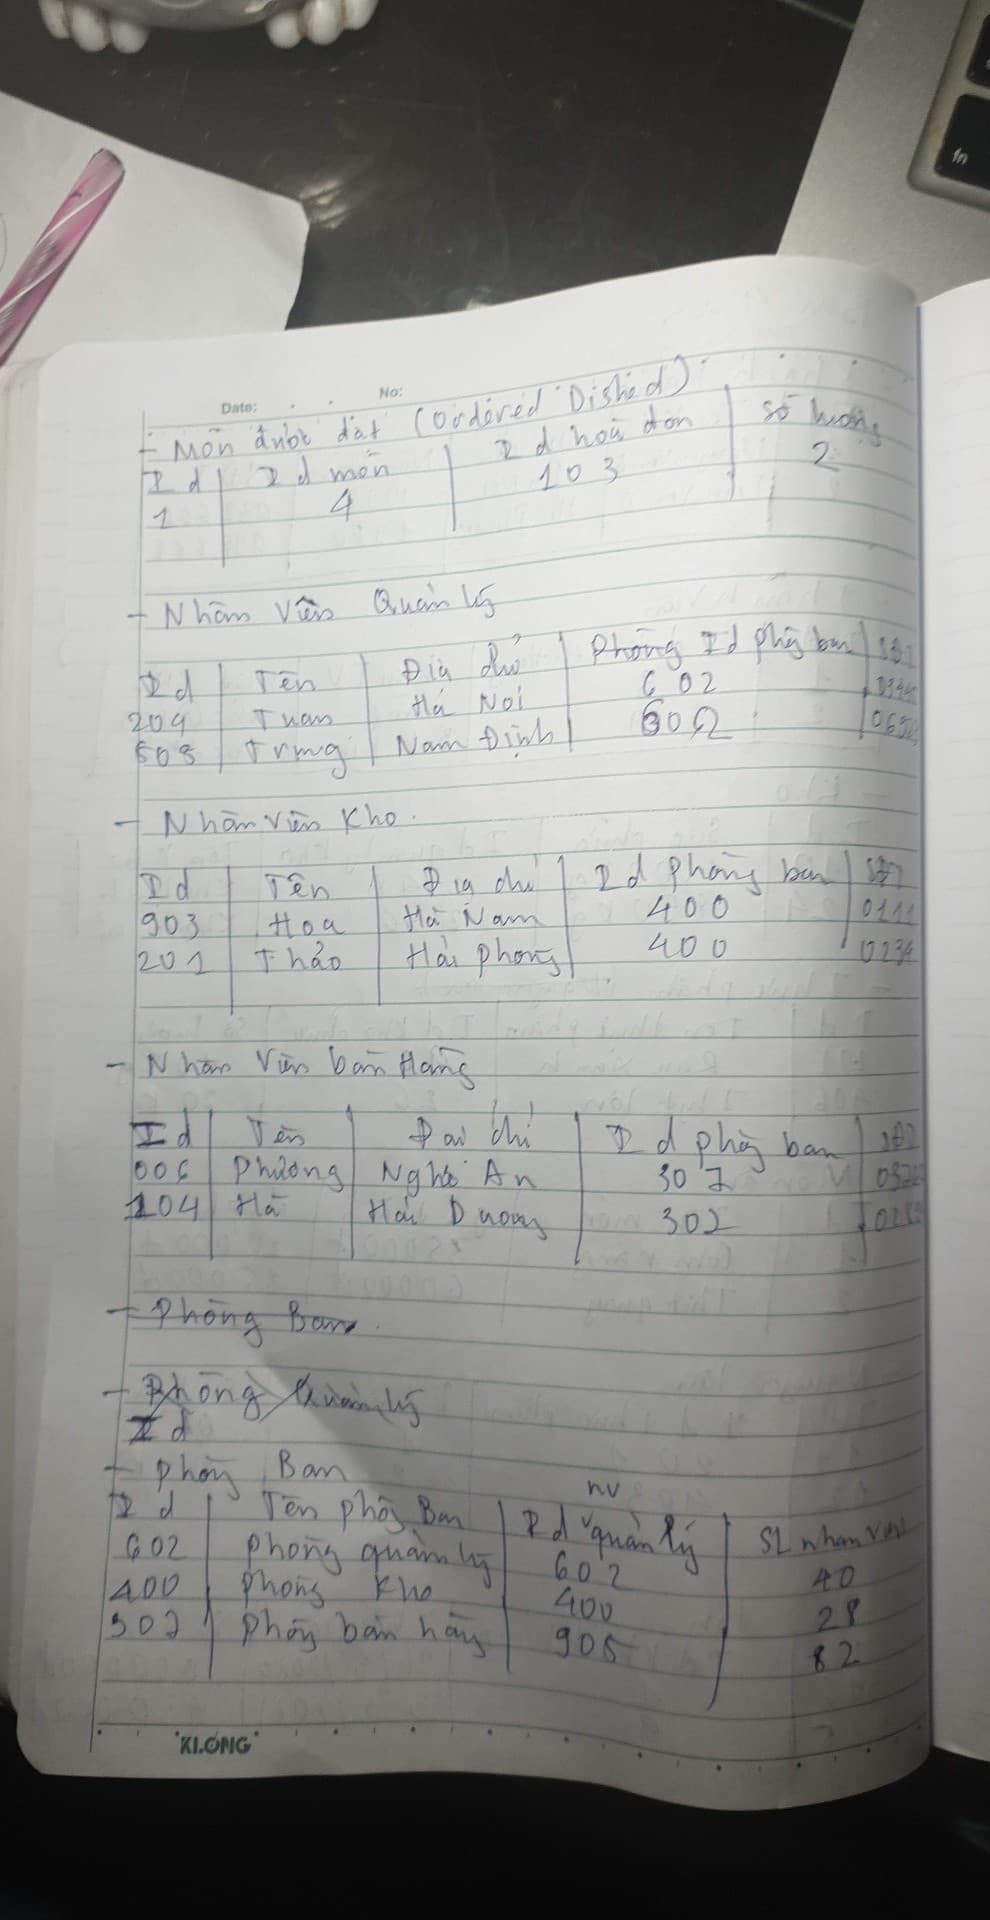 fn
Date: No:
- Món được đặt (Ordered Dished)
Id | Id món | Id hoá đơn | Số lượng
1 | 4 | 103 | 2
- Nhân Viên Quản lý
Id | Tên | Địa chỉ | Phòng Id phòng ban | SĐT
204 | Tuan | Hà Nội | 602
508 | Trung | Nam Định | 602
- Nhân Viên Kho.
Id | Tên | Địa chỉ | Id phòng ban | SĐT
903 | Hoa | Hà Nam | 400 | 0111
201 | Thảo | Hải phong | 400 | 0234
- Nhân Viên bán Hàng
Id | Tên | Đai chỉ | Id phòng ban | SĐT
006 | Phương | Nghê An | 302
104 | Hà | Hải Duong | 302
- Phòng Ban.
- Phòng Quản lý
Id
- Phòng Ban
Id | Tên phòng Ban | Id nv quản lý | SL nhan viên
602 | Phòng quản lý | 602 | 40
400 | Phong Kho | 400 | 28
302 | Phòng bán hàng | 905 | 82
KLONG